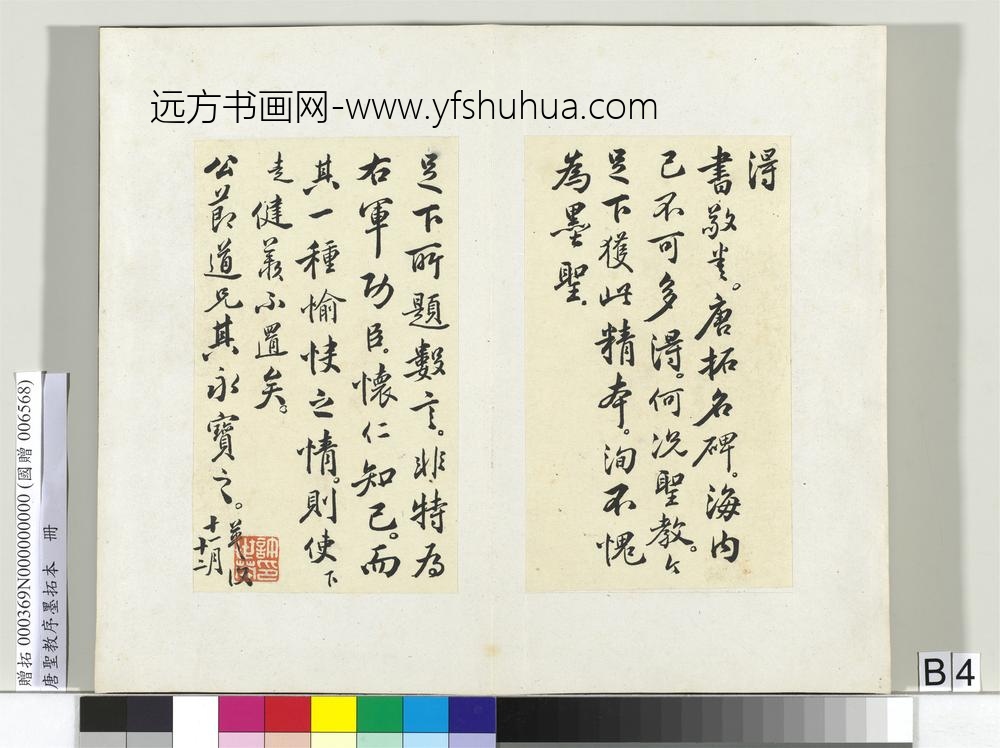 远方书画网-www.yfshuhua.com
得
書敬悉。唐拓名碑。海內
已不可多得。何況聖教。今
足下獲此精本。洵不愧
為墨聖。
足下所題數言。非特為
右軍功臣。懷仁知己。而
其一種愉快之情。則使下
走健羨不置矣。
公節道兄其永寶之。
十一月
十二
贈拓 000369N000000000 (國贈 006568)
唐聖教序墨拓本 冊
B4